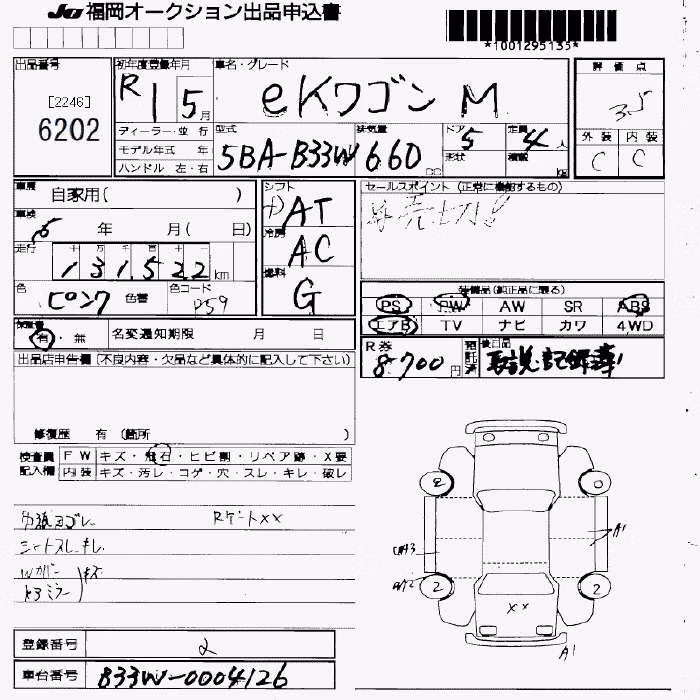 JU 福岡オークション出品申込書
*1001295135*
出品番号
[2246]
6202
初年度登録年月
R 1 5月
車名・グレード
eKワゴン M
評価点
3.5
外装 内装
C C
ディーラー・並行
モデル年式 年
ハンドル 左・右
型式
5BA-B33W
排気量
660 cc
ドア
5
形状
定員
4人
積載 kg
車歴
自家用( )
車検
5年 月( 日)
走行
十 万 千 百 十 一
131,522 km
色
ピンク 色替
色コード
P59
シフト
AT
冷房
AC
燃料
G
セールスポイント (正常に機能するもの)
装備品(純正品に限る)
PS PW AW SR ABS
エアB TV ナビ カワ 4WD
保証書
有・無
名変通知期限 月 日
R券
8,700円
預託済
後日品
取説,記録簿
出品店申告欄(不良内容・欠品など具体的に記入して下さい)
修復歴 有 (箇所 )
検査員記入欄
FW キズ・飛石・ヒビ割・リペア跡・X要
内装 キズ・汚レ・コゲ・穴・スレ・キレ・破レ
内張ヨゴレ
RゲートXX
シートスレ キレ
Wカバー
ドアミラー キズ
2
2
2
A1
UA3
XX
A1
登録番号
2
車台番号
B33W-0004126